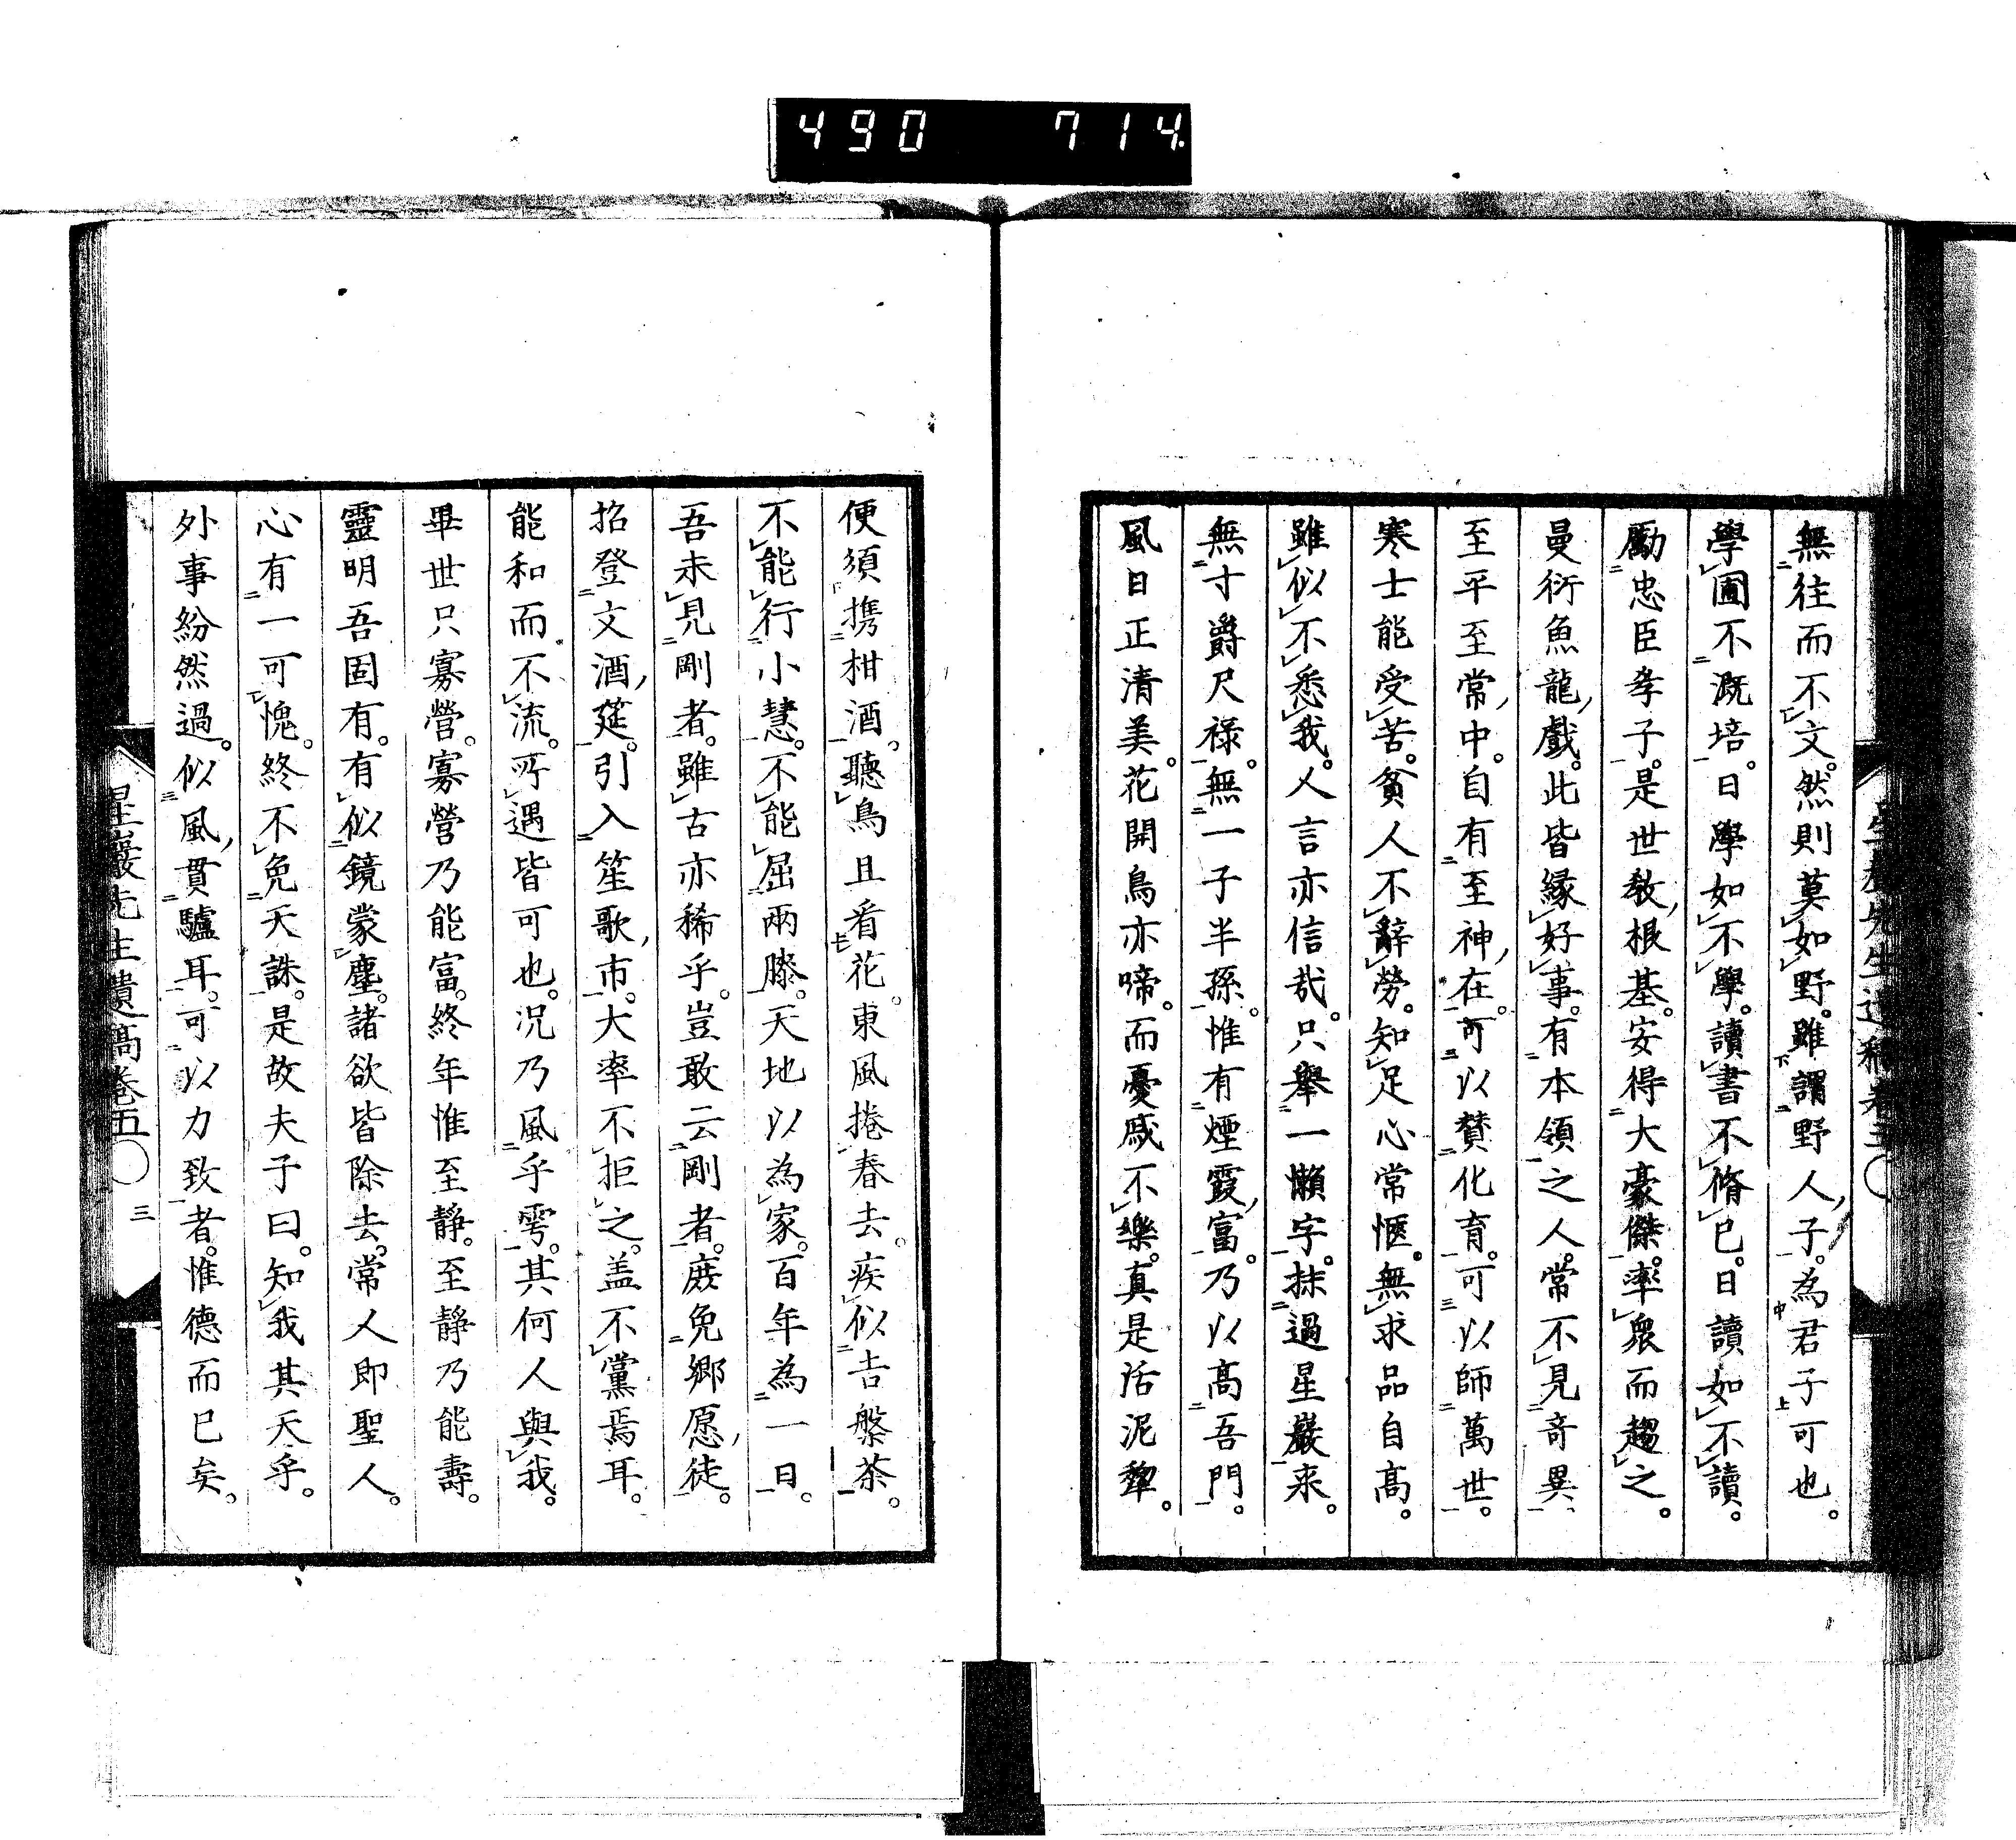 490 714
無往而不文。然則莫如野。雖謂野人子。為君子可也。
學圃不漑培。日學如不學。讀書不脩已。日讀如不讀。
勵忠臣孝子。是世敎根基。安得大豪傑。率衆而趨之。
曼衍魚龍戲。此皆緣好事。有本領之人。常不見奇異、
至平至常中。自有至神在。可以賛化育。可以師萬世。
寒士能受苦。貧人不辭勞。知足心常愜。無求品自高。
雖似不悉我。人言亦信哉。只擧一懶字。抹過星巖来。
無寸爵尺祿。無一子半孫。惟有煙霞富。乃以高吾門。
風日正清美。花開鳥亦啼。而憂戚不樂。真是活泥犂。
便須携柑酒。聽鳥且看花。東風捲春去。疾似吉槃茶。
不能行小慧。不能屈兩膝。天地以為家。百年為一日。
吾未見剛者。雖古亦稀乎。豈敢云剛者。庶免鄉愿徒。
招登文酒筵。引入笙歌市。大率不拒之。盖不黨焉耳。
能和而不流。所遇皆可也。况乃風乎雩。其何人與我。
畢世只寡營。寡營乃能富。終年惟至靜。至靜乃能壽。
靈明吾固有。有似鏡蒙塵。諸欲皆除去。常人即聖人。
心有一可愧。終不免天誅。是故夫子曰。知我其天乎。
外事紛然過。似風貫驢耳。可以力致者。惟德而已矣。
星巖先生遺稿卷五〇 三